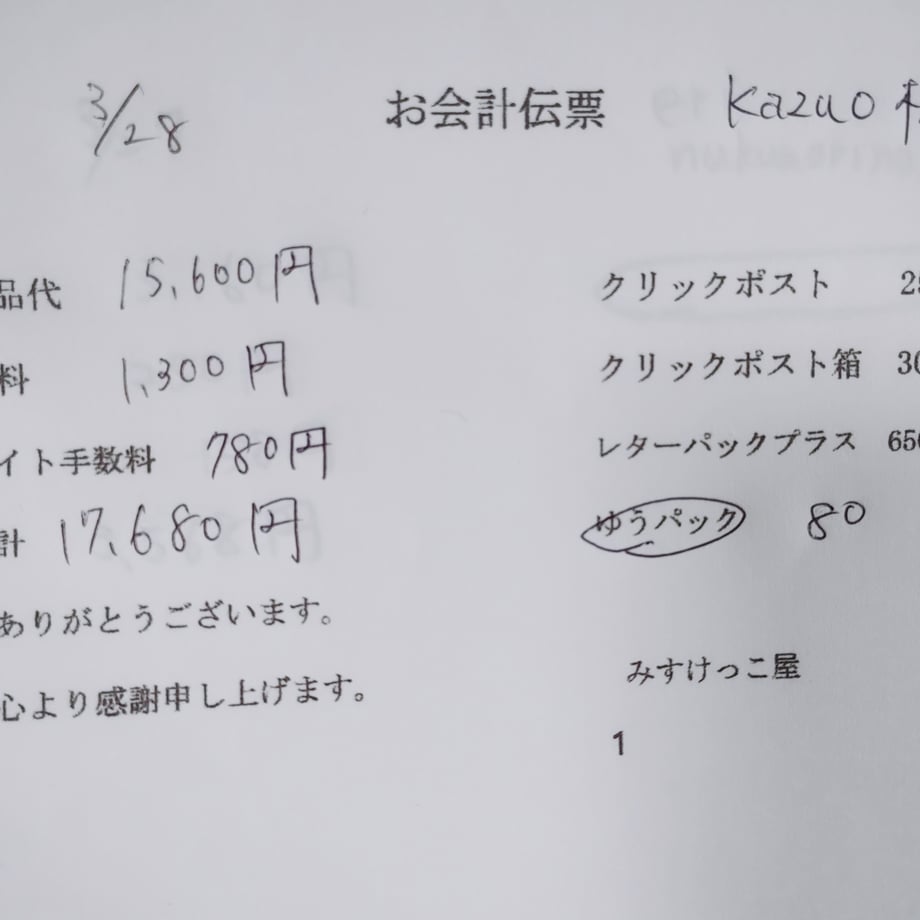 3/28
お会計伝票
Kazuo
品代 15,600円
料 1,300円
イト手数料 780円
計 17,680円
ありがとうございます。
心より感謝申し上げます。
クリックポスト
クリックポスト箱
レターパックプラス 650
ゆうパック 80
みすけっこ屋
1